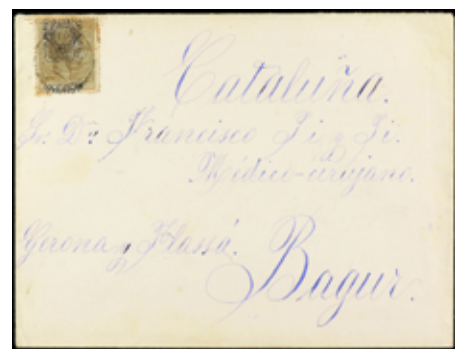 Cataluña.
Sr. Dn. Francisco Pi y Pi.
Médico-cirujano.
Gerona y Flassá.
Bagur.